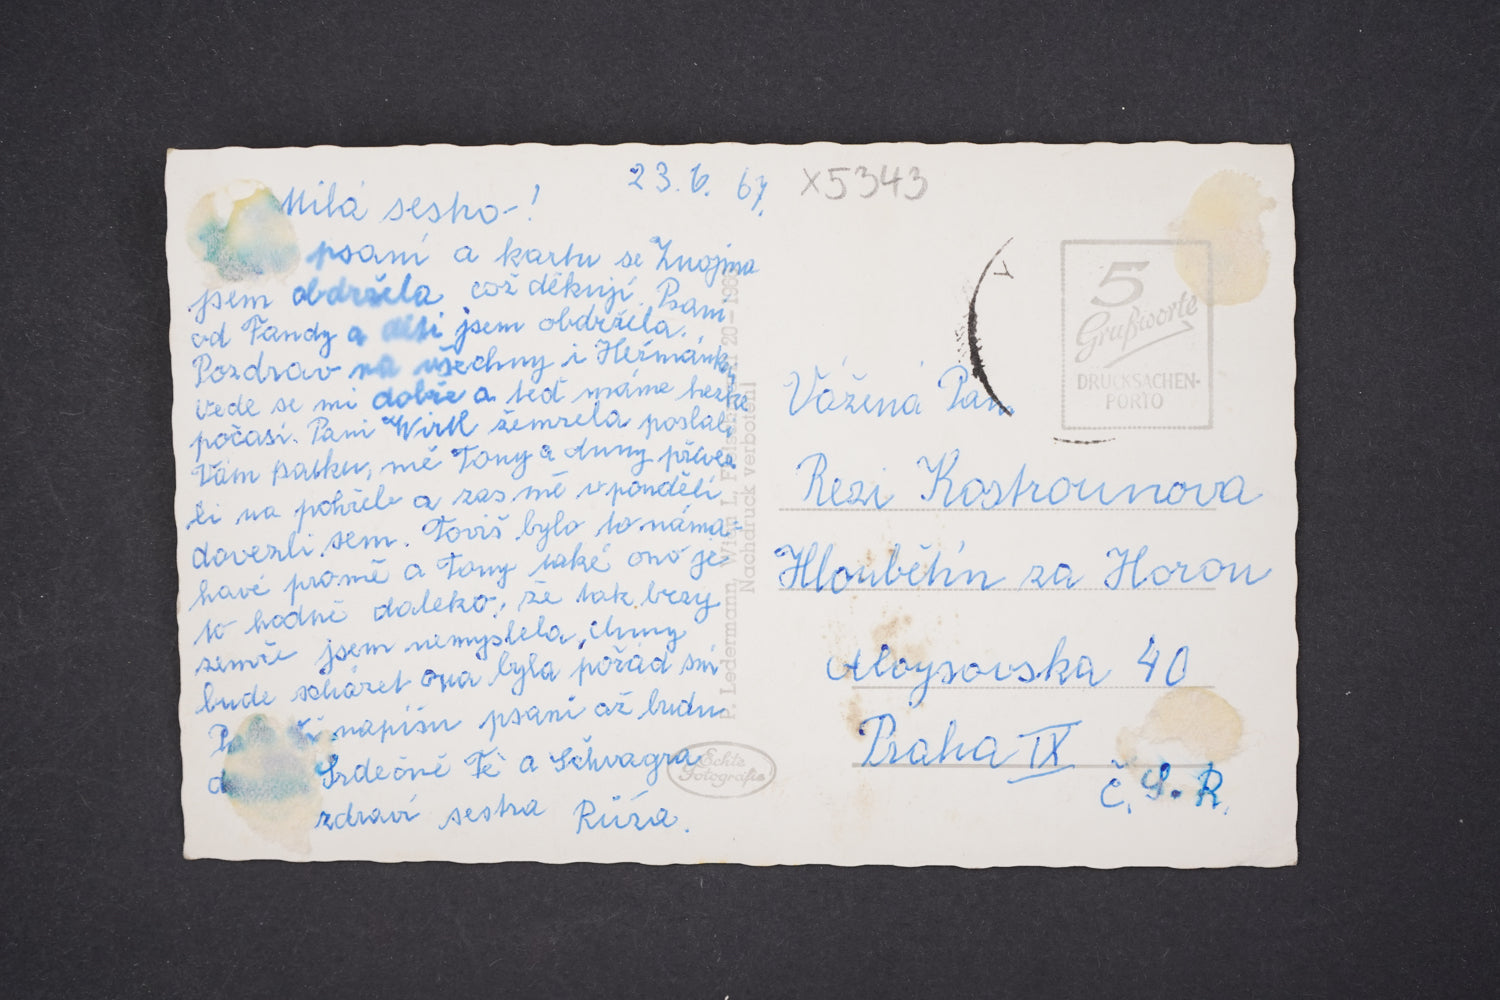 23.6.67.
X5343
Milá sestro-!
psaní a kartu se Znojma
jsem obdržela což děkuji. Psaní
od Fandy a děti jsem obdržela.
Pozdrav na všechny i Heřmánk
Vede se mi dobře a teď máme hezké
počasí. Paní Wirtl zemřela poslali
Vám patku, mě Tony a
li na pohřeb a zas mě v pondělí
dovezli sem. Toviš bylo to náma-
havé promě a Tony také ono je
to hodně daleko, že tak brzy
zemře jsem nemyslela,
bude scházet ona byla pořád
napíšu psaní až budu
Srdečně Tě a Schvagra
zdraví sestra Růža.
P. Ledermann, Wien I,
Nachdruck verboten!
Echte
Fotografie
5
Grußworte
DRUCKSACHEN-
PORTO
Vážená Paní
Rezi Kostrounova
Hloubětín za Horou
Aloysovska 40
Praha IX
Č.S.R.